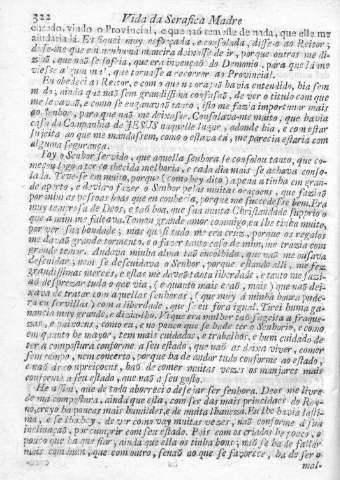 322 Vida da Serafica Madre
cado, vindo o Provincial, e que naõ tem elle de nada, que elle me
ajudaria lá. Eu fiquei muy esforçada, e consolada, disse-o ao Reitor;
disse-me que em nenhuma maneira deixasse de ir, porque outros me di-
ziaõ, que naõ se sofria, que era invençaõ do Demonio, para que lá me
viesse algum mal, que tornasse a recorrer ao Provincial.
Eu obedeci ao Reitor, e com o que na oraçaõ havia entendido, hia sem
medo, ainda que naõ sem grandissima confusaõ, de ver o titulo com que
me levavaõ, e como se enganavaõ tanto, isto me fazia importunar mais
ao Senhor, para que naõ me deixasse. Consolava-me muito, que havia
casa da Companhia de JESUS naquelle lugar, adonde hia, e com estar
sujeita ao que me mandassem, como o estava cá, me parecia estaria com
alguma segurança.
Foy o Senhor servido, que aquella senhora se consolou tanto, que co-
meçou logo a ter conhecida melhoria, e cada dia mais se achava conso-
lada. Teve-se em muito, porque (como hey dito) a pena a tinha em gran-
de aperto, e devia-o fazer o Senhor pelas muitas oraçoens, que faziaõ
por mim as pessoas boas que eu conhecia, porque me succedesse bem. Era
muy temerosa de Deos, e taõ boa, que sua muita Christandade supprio o
que a mim me faltava. Tomou grande amor comigo, eu lho tinha muito,
por ver sua bondade; mas quasi tudo me era cruz, porque os regalos
me davaõ grande tormento, e o fazer tanto caso de mim, me trazia com
grande temor. Andava minha alma taõ encolhida, que naõ me ousava
descuidar, nem se descuidava o Senhor, porque estando alli, me fez
grandissimas merces, e estas me davaõ tanta liberdade, e tanto me fazi-
aõ desprezar tudo o que via, (e quanto mais eraõ, mais) que naõ dei-
xava de tratar com aquellas senhoras, (que muy á minha honra pude-
ra eu servillas) com a liberdade, que se eu fora igual. Tirei huma ga-
nancia muy grande, e dizialho. Vi que era mulher taõ sugeita a fraque-
zas, e paixoens, como eu, e no pouco que se ha de ter o Senhorio, e como
em quanto he mayor, tem mais cuidados, e trabalhos, e hum cuidado de
ter a compostura conforme a seu estado, que naõ as deixa viver, comer
sem tempo, nem concerto, porque ha de andar tudo conforme ao estado,
e naõ às compreiçoens, haõ de comer muitas vezes os manjares mais
conforme a seu estado, que naõ a seu gosto.
He assim, que de todo aborreci o desejar ser senhora. Deos me livre
de má compostura, ainda que esta, com ser das mais principaes do Rey-
no, creyo ha poucas mais humildes, e de muita lhaneza. Eu lhe havia lasti-
ma, e se lha hey, de ver como vay muitas vezes, naõ conforme a sua
inclinaçaõ, por cumprir com seu estado. Pois com os criados he pouco, o
pouco que ha que fiar, ainda que ella os tinha bons; naõ se ha de fallar
mais com hum, que com outro, senaõ ao que se favorece, ha de ser o
mal-